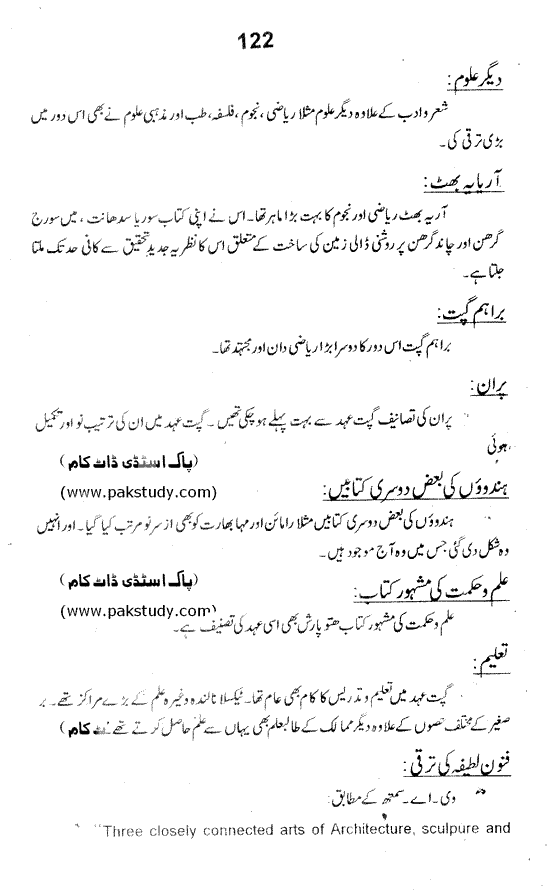 122
دیگر علوم:
شعر و ادب کے علاوہ دیگر علوم مثلا ریاضی ، نجوم ، فلسفہ، طب اور مذہبی علوم نے بھی اس دور میں
بڑی ترقی کی۔
آریا یہ بھٹ:
آریہ بھٹ ریاضی اور نجوم کا بہت بڑا ماہر تھا۔ اس نے اپنی کتاب سوریا سدھانت ، میں سورج
گرھن اور چاند گرھن پر روشنی ڈالی زمین کی ساخت کے متعلق اس کا نظریہ جدید تحقیق سے کافی حد تک ملتا
جلتا ہے۔
براہم گپت:
براہم گپت اس دور کا دوسرا بڑا ریاضی دان اور مجتہد تھا۔
پران:
پران کی تصانیف گپت عہد سے بہت پہلے ہو چکی تھیں ۔ گپت عہد میں ان کی ترتیب نو اور تکمیل
ہوئی
(پاک اسٹڈی ڈاٹ کام)
(www.pakstudy.com)
ہندوؤں کی بعض دوسری کتابیں:
ہندوؤں کی بعض دوسری کتابیں مثلا رامائن اور مہا بھارت کو بھی از سر نو مرتب کیا گیا۔ اور انہیں
وہ شکل دی گئی جس میں وہ آج موجود ہیں۔
(پاک اسٹڈی ڈاٹ کام)
علم و حکمت کی مشہور کتاب:
(www.pakstudy.com)
علم و حکمت کی مشہور کتاب ھتو پارش بھی اسی عہد کی تصنیف ہے۔
تعلیم:
گپت عہد میں تعلیم و تدریس کا کام بھی عام تھا۔ ٹیکسلا نالندہ وغیرہ علم کے بڑے مراکز تھے۔ بر
صغیر کے مختلف حصوں کے علاوہ دیگر ممالک کے طالبعلم بھی یہاں سے علم حاصل کرتے تھے کام)
فنون لطیفہ کی ترقی:
وی۔ اے۔ سمتھ کے مطابق:
"Three closely connected arts of Architecture, sculpure and